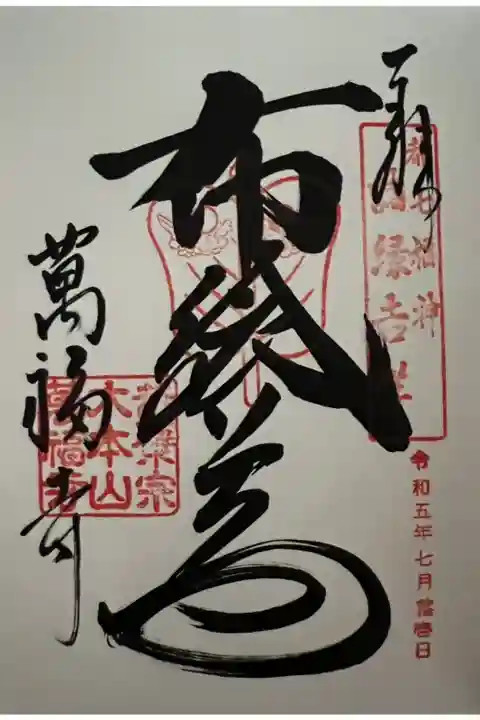 奉拝
都七福神
因縁吉祥
令和五年七月弐壱日
布袋尊
萬福寺
黄檗宗
大本山
萬福寺